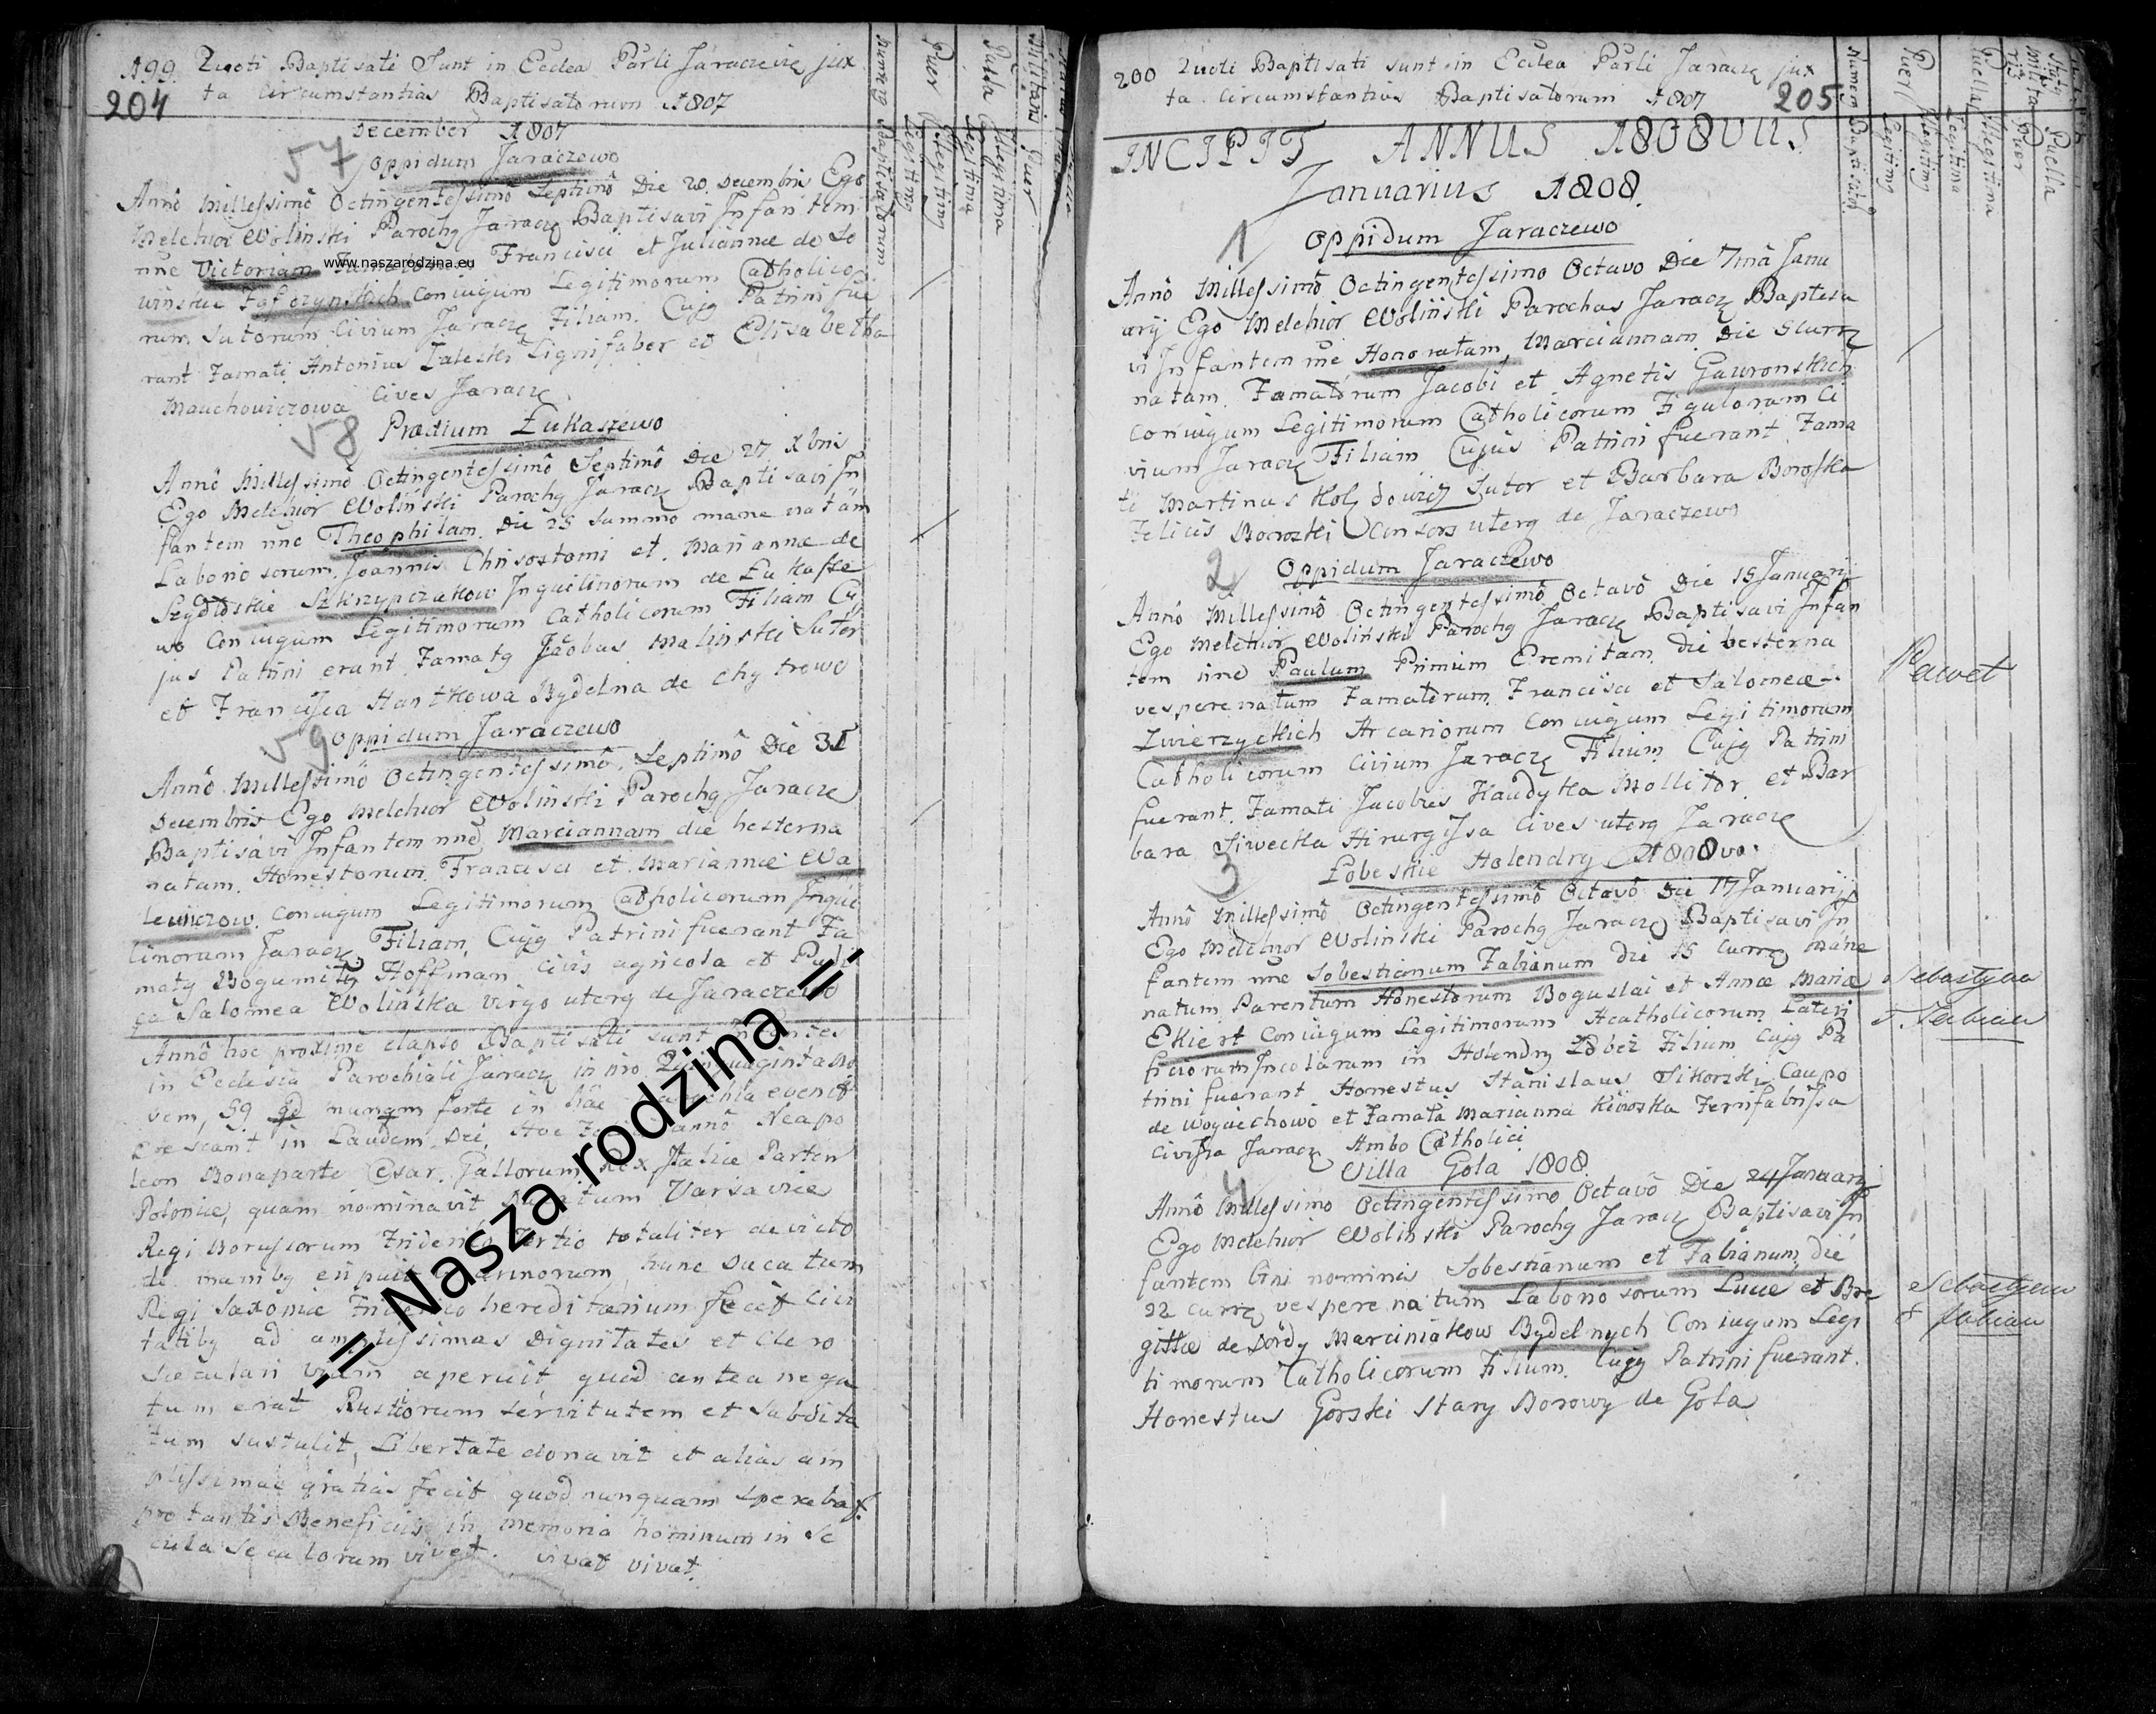 199. Quoti Baptisati Sunt in Ecclea Parli Jaraczevię jux
204 ta Circumstantias Baptisatorum 1807
December 1807
57 Oppidum Jaraczewo
Annô Millessimô Octingentessimô Septimô Die 20 Decembris Ego
Melchior Woliński Parochg Jaraczę Baptisavi Infantem
nne Victoriam Francisci et Juliannæ de
www.naszarodzina.eu
Coniugum Legitimorum Catholico
rum Sutorum Civium Jaraczę Filiam. Cujg Patrini fue
rant Famati Antonius Zaleski Lignifaber et Elisabetha
Mauchowiczowa Cives Jaraczę
58 Prædium Łukaszewo
Annô Millessimô Octingentessimô Septimô Die 27 Xbris
Ego Melchior Woliński Parochg Jaraczę Baptisavi In
fantem nne Theophilam. Die 25 summo mane natam
Laboriosorum Joannis Chrisostomi et Mariannæ de
Szydłoskie Szkrzypczakow Inquilinorum de Łukasze
wo Coniugum Legitimorum Catholicorum Filiam Cu
jus Patrini erant Famatg Jacobus Malinski Sutor
et Francisca Hantkowa Bydelna de Chytrowo
59 Oppidum Jaraczewo
Annô Millessimô Octingentessimô Septimô Die 31
Decembris Ego Melchior Woliński Parochg Jaraczę
Baptisavi Infantem nne Marciannam die hesterna
natam. Honestorum Francisci et Mariannæ Wa
lewiczow Coniugum Legitimorum Catholicorum Inqui
linorum Jaraczę Filiam, Cujg Patrini fuerant Fa
matg Bogumiłg Hoffman civis agricola et Pudi
ca Salomea Wolińska virgo uterq de Jaraczewo
Annô hoc proxime elapso Baptisati sunt Infantes
in Ecclesia Parochiali Jaraczę in nro Quinquaginta no
vem, 59 qd nunqm forte in hac evenit
crescant in Laudem Dei, Hoc annô Neapo
leon Bonaparte Cesar Gallorum Rex Italiæ Partem
Poloniæ, quam nominavit Ducatum Varsaviæ
Regi Borussorum Friderico Tertio totaliter devicto
de manibg eripuit armorum, hunc Ducatum
Regi Saxoniæ Friderico hereditarium fecit Civi
tatibg ad amplissimas Dignitates et Clero
Sæculari viam aperuit quod antea nega
tum erat Rusticorum servitutem et subdita
tum sustulit, Libertate donavit et alias am
plissimas gratias fecit quod nunquam sperabat
pro tantis Beneficiis in memoria hominum in Se
cula Seculorum vivet. vivat vivat.
=| Nasza rodzina |=
200 Quoti Baptisati sunt in Ecclea Parli Jaraczę jux
ta Circumstantias Baptisatorum 1807 205
INCIPIT ANNUS 1808VUS
Januarius 1808.
1 Oppidum Jaraczewo
Annô Millessimô Octingentessimo Octavo Die 7mâ Janu
arij Ego Melchior Woliński Parochus Jaraczę Baptisa
vi Infantem nne Honoratam, Marciannam Die 5 curr
natam. Famatorum Jacobi et Agnetis Gawronskich
Coniugum Legitimorum Catholicorum Figulorum Ci
vium Jaraczę Filiam Cujus Patrini fuerant Fama
ti Martinus Sutor et Barbara Boroska
Felicis Boroski Consors uterq de Jaraczewo
2 Oppidum Jaraczewo
Annô Millessimô Octingentessimô Octavô Die 15 Januarij
Ego Melchior Woliński Parochg Jaraczę Baptisavi Infan
tem nne Paulum Primum Eremitam die hesterna
vespere natum Famatorum Francisci et Salomeæ
Zwierzyckich Arcariorum Coniugum Legitimorum
Catholicorum Civium Jaraczę Filium Cujg Patrini
fuerant Famati Jacobus Haudyka Mollitor et Bar
bara Siwecka Hirurgissa Cives uterq Jaraczę
Paweł
3 Łobeskie Holendry 1808vo.
Annô Millessimô Octingentessimô Octavô Die 17 Januarij
Ego Melchior Woliński Parochg Jaraczę Baptisavi In
fantem nne Sobestianum Fabianum die 15 curr mane
natum Parentum Honestorum Boguslai et Annæ Mariæ
Ekiert Coniugum Legitimorum Acatholicorum Lateri
ficiorum Incolarum in Holendry Łobez Filium Cujg Pa
trini fuerant Honestus Stanislaus Sikorski Caupo
de Woyciechowo et Famata Marianna Kiioska Ferrifabrissa
Civissa Jaraczę Ambo Catholici
Sebastyan
i Fabian
4 Villa Gola 1808
Annô Millessimo Octingentessimo Octavô Die 24 Januarij
Ego Melchior Woliński Parochg Jaraczę Baptisavi In
fantem bini nominis Sobestianum et Fabianum, die
22 curr vespere natum Laboriosorum Lucæ et Bre
gittæ de Dordy Marciniakow Bydelnych Coniugum Legi
timorum Catholicorum Filium. Cujg Patrini fuerant
Honestus Gorski Stary Borowy de Gola
Sebastyan
i Fabian